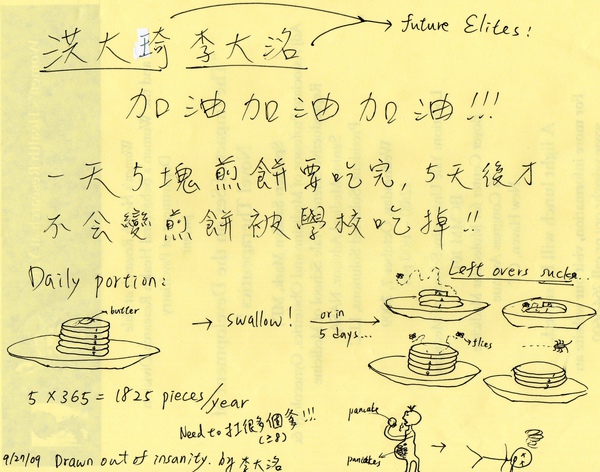 洪大琦 李大洺 → future Elites!
加油加油加油!!!
一天5塊煎餅要吃完, 5天後才
不会變煎餅被學校吃掉!!
Daily portion:
Left overs suck...
butter
→ swallow!
or in
5 days...
flies
5 x 365 = 1825 pieces/year
Need to 扛很多個爹!!!
(≥8)
pancake
pancakes
9/27/09 Drawn out of insanity. by 李大洺